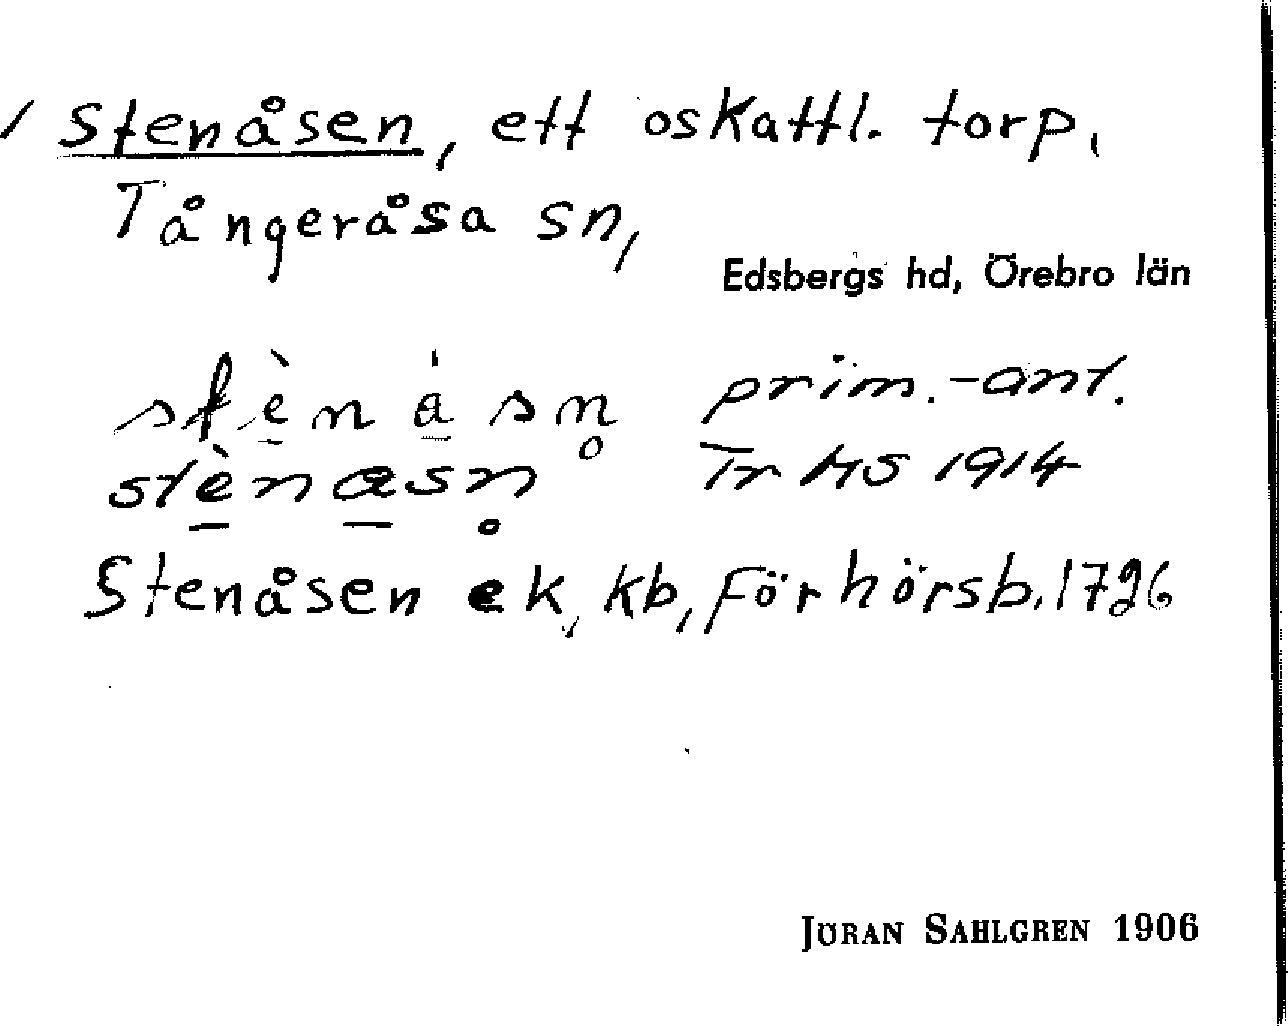 Stenåsen, ett oskattl. torp,
Tångeråsa sn,
Edsbergs hd, Örebro län
stè̱na̱̍sn̥ prim.-ant.
stè̱na̱sn̥ Tr HS 1914
Stenåsen ek, kb, Förhörsb. 1726
JÖRAN SAHLGREN 1906